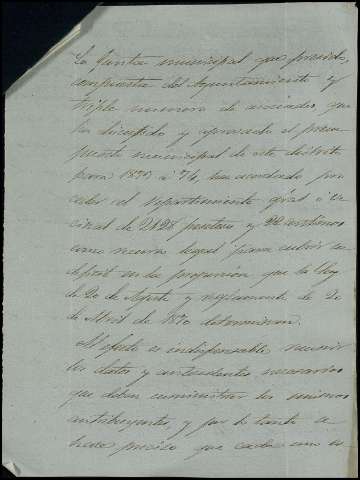 La Junta municipal que presido,
compuesta del Ayuntamiento y
triple número de asociados, que
ha discutido y aprobado el presu
puesto municipal de este distrito
para 1875 á 76, ha acordado pro
ceder al repartimiento gral ó ve
cinal de 2128 pesetas y 22 centimos
como medio legal para cubrir su
deficit en la proporcion que la ley
de 20 de Agosto y reglamento de 20
de Abril de 1870 determinan.
Al efecto es indispensable reunir
los datos y antecedentes necesarios
que deben suministrar los mismos
contribuyentes, y por lo tanto se
hace preciso que cada uno